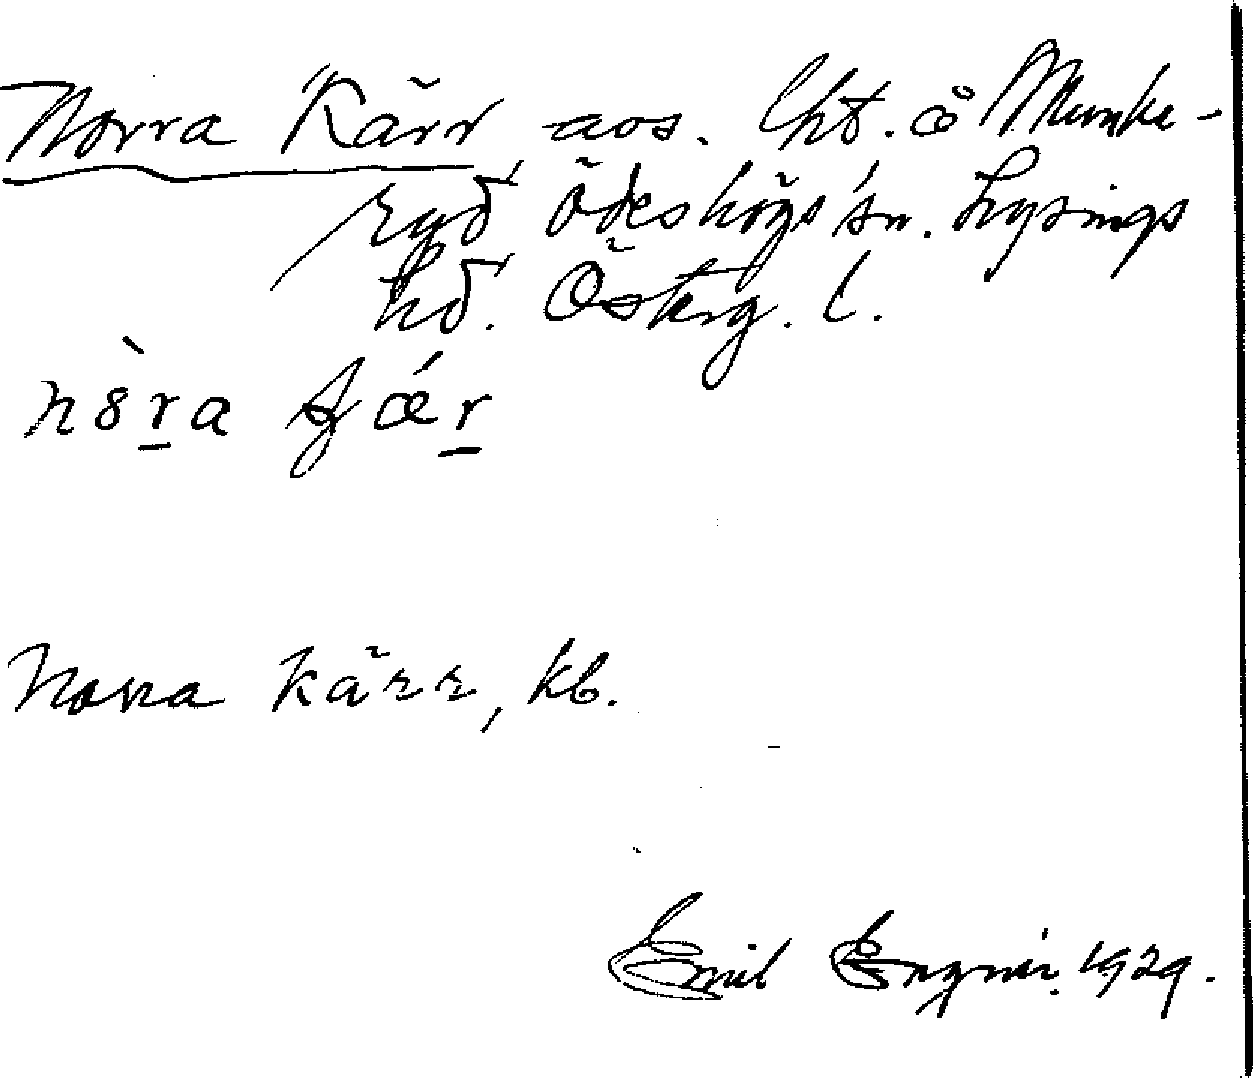 Norra Kärr, aos. lht. å Munke-
ryd, Ödeshögs sn. Lysings
hd. Österg. l.
Norra Kärr, kb.
Emil Engnér. 1929.